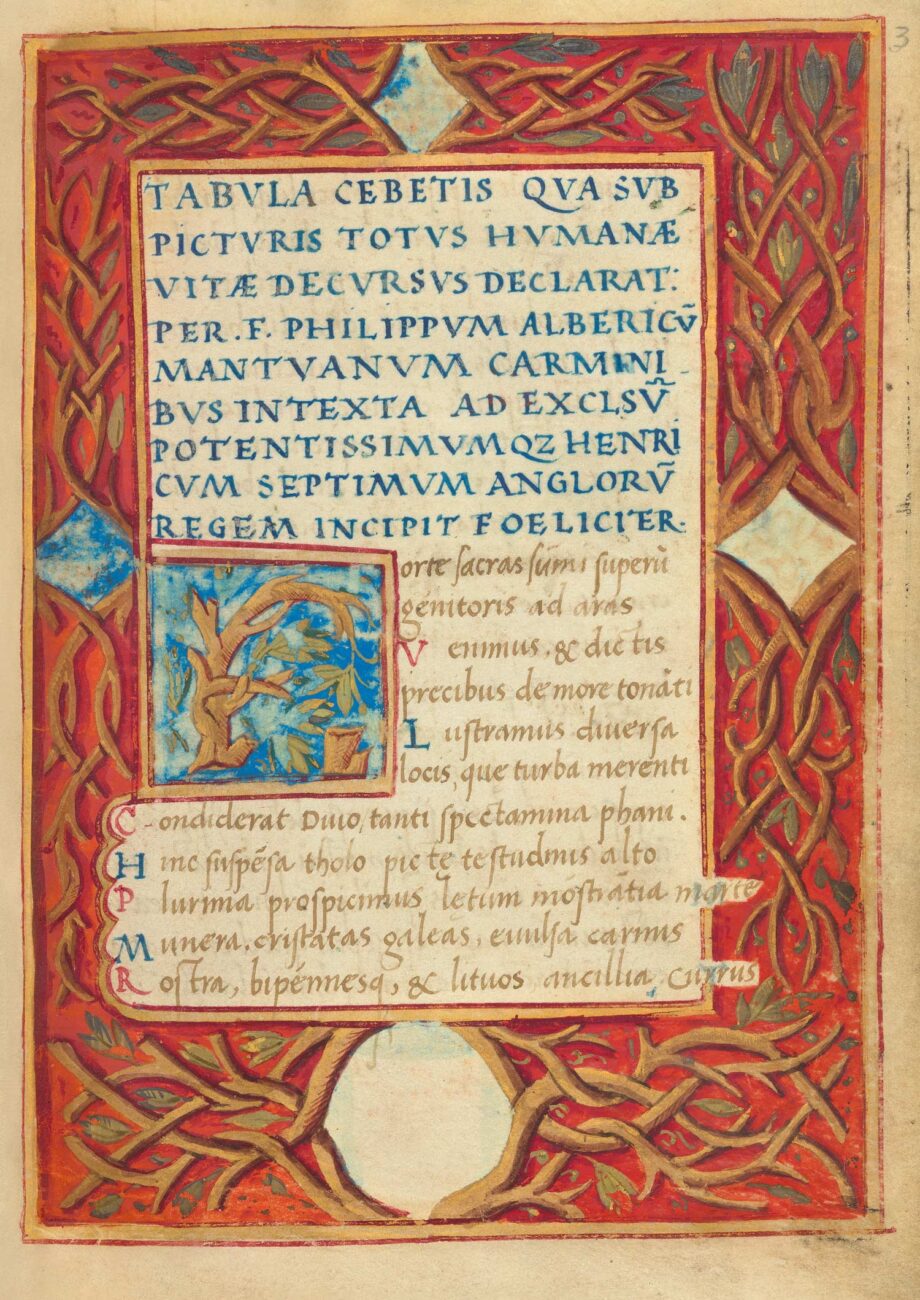 3
TABVLA CEBETIS QVA SVB
PICTVRIS TOTVS HVMANÆ
VITÆ DECVRSVS DECLARAT:
PER .F. PHILIPPVM ALBERICŪ
MANTVANVM CARMINI
BVS INTEXTA AD EXCLSŪ
POTENTISSIMVMQZ HENRI
CVM SEPTIMVM ANGLORŪ
REGEM INCIPIT FOELICITER.
Forte sacras sūmi superū
genitoris ad aras
Venimus, & dictis
precibus de more tonāti
Lustramus diuersa
locis, que turba merenti
Condiderat Diuo, tanti spectamina phani.
Hinc suspēsa tholo picte testudinis alto
Plurima prospicimus letum mōstrātia marte
Munera, cristatas galeas, euulsa carinis
Rostra, bipēnnesq, & lituos ancillia currus